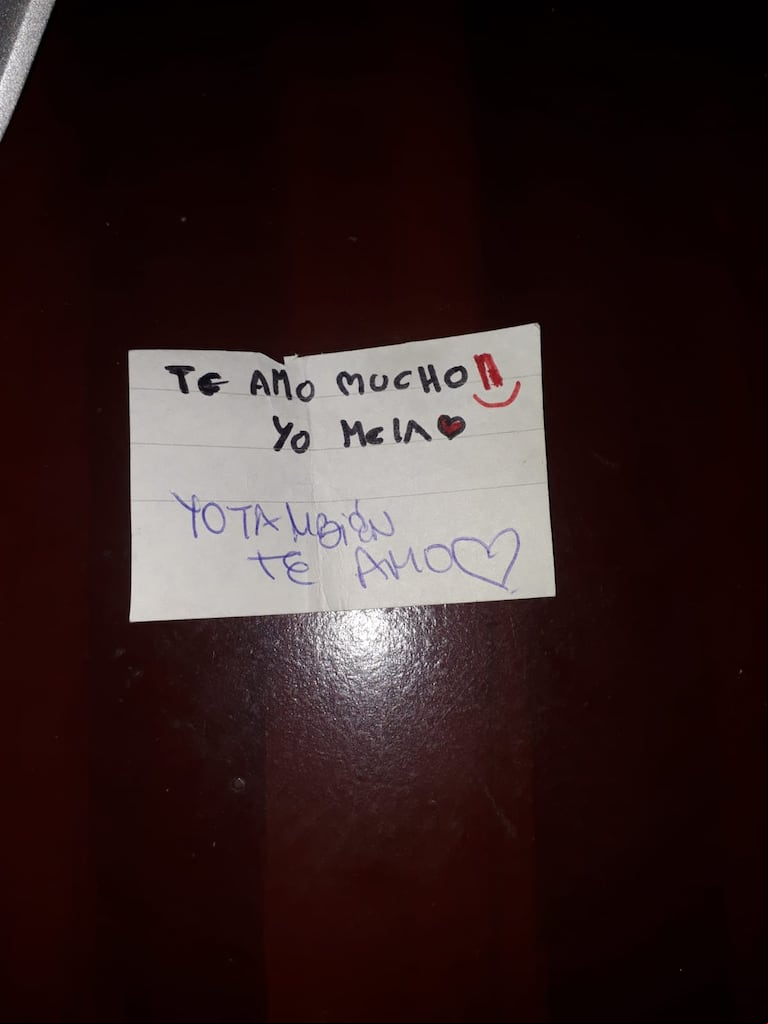 TE AMO MUCHO
YO MelA
YO TAMBIÉN
TE AMO